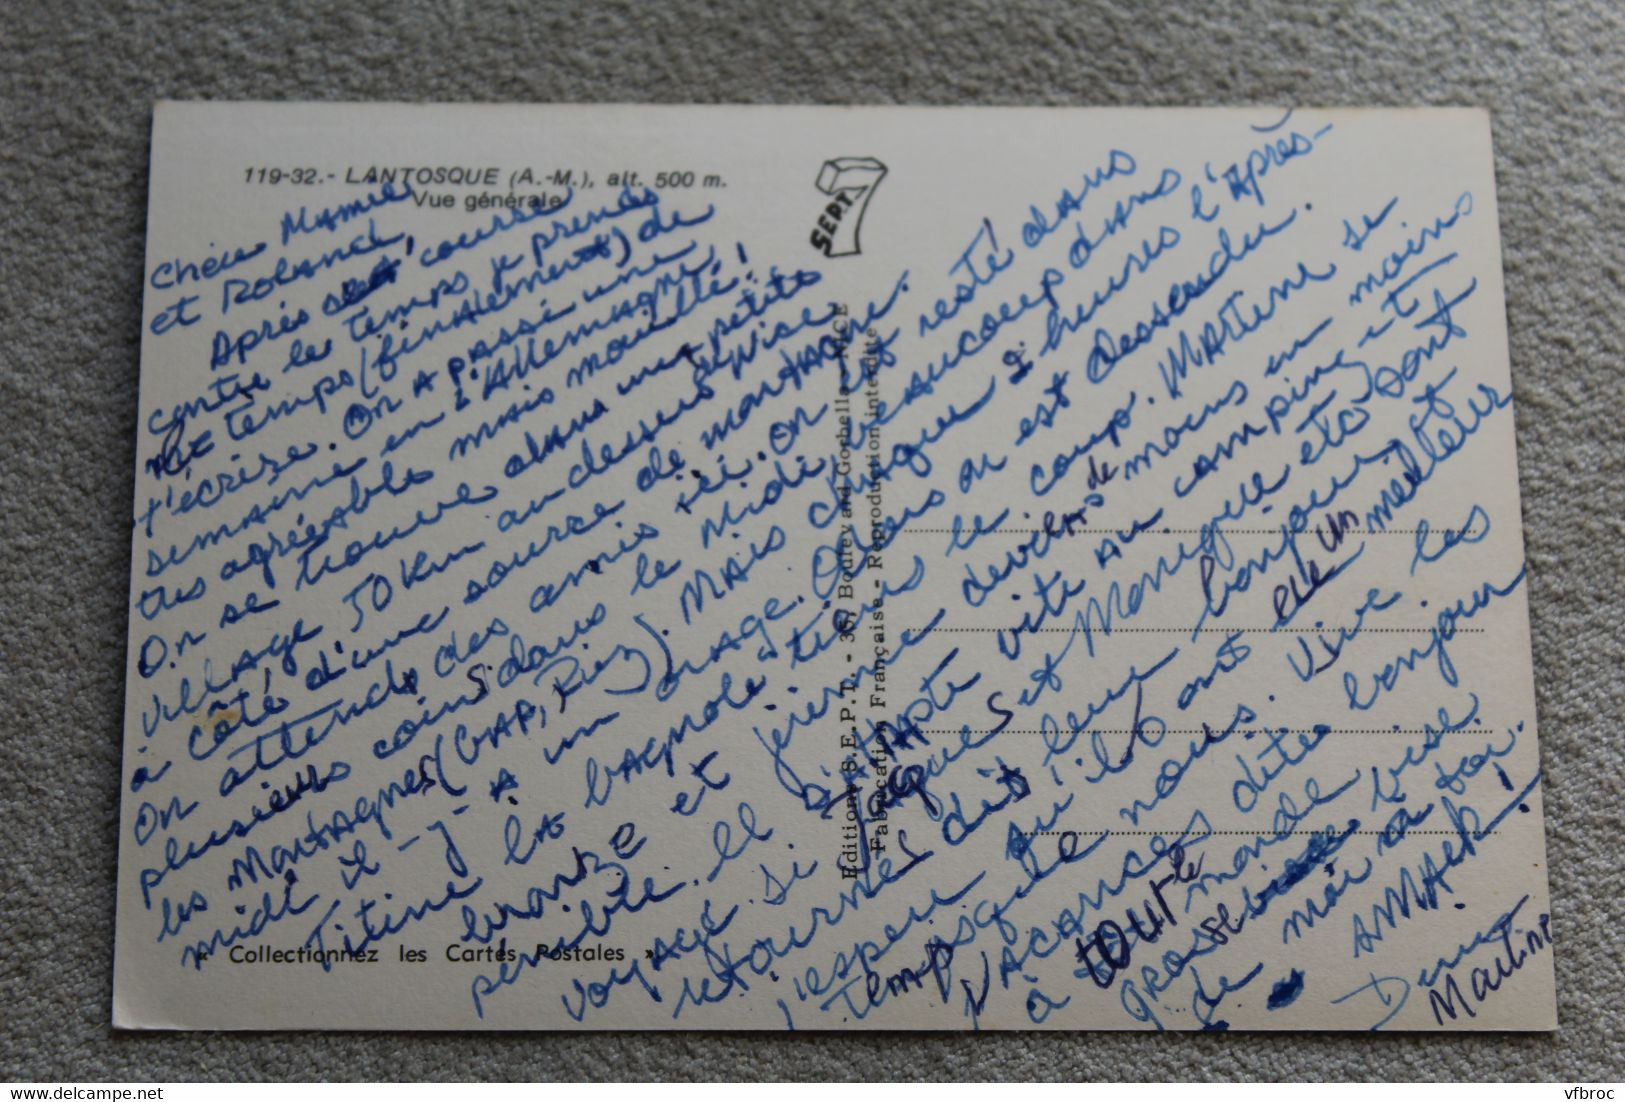 119-32.- LANTOSQUE (A.-M.), alt. 500 m.
Vue générale
SEPT.
Chère Mamie
et Roland,
Après course
contre le temps je prends
le temps (finalement) de
t'écrire. On a passé une
semaine en Allemagne
très agréable mais mouillé !
On se trouve dans un petit
village 50 km au dessus de Nice
à côté d'une source de montagne.
On attend des amis ici. On est resté dans
plusieurs coins dans le Midi, beaucoup dans
les Montagnes (GAP, Riez). Mais chaque 2 heures l'Après-
midi il-y-a un orage. Alors on est descendu.
Titine la bagnole tiens le coup. Martine se
bronze et jérome deviens de moins en moins
penible. Il s'adapte vite au camping et
voyage si Jacques et Monique etc sont
retournés dit leur bonjour et
j'espère qu'il ont eue un meilleur
temps que nous. Vive les
VACANCES dites bonjour
à TOUT le monde
gros bise
de moi
Martine
Editions S.E.P.T. - 36, Boulevard Gorbella - NICE
Fabrication Française - Reproduction interdite
« Collectionnez les Cartes Postales »
vfbroc